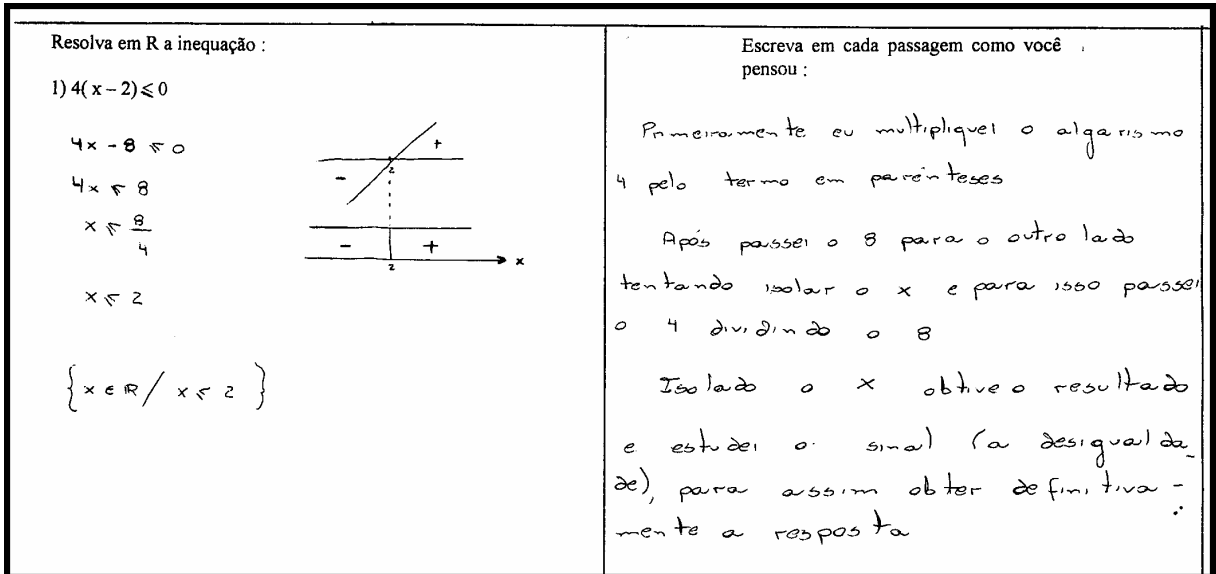 Resolva em R a inequação :
1) 4( x – 2) ⩽ 0
4x - 8 ⩽ 0
4x ⩽ 8
x ⩽ 8/4
x ⩽ 2
{ x ∈ R / x ⩽ 2 }
+
-
2
-
+
2
x
Escreva em cada passagem como você
pensou :
Primeiramente eu multipliquei o algarismo
4 pelo termo em parênteses
Após passei o 8 para o outro lado
tentando isolar o x e para isso passei
o 4 dividindo o 8
Isolado o x obtive o resultado
e estudei o sinal (a desigualda_
de), para assim obter definitiva -
mente a resposta